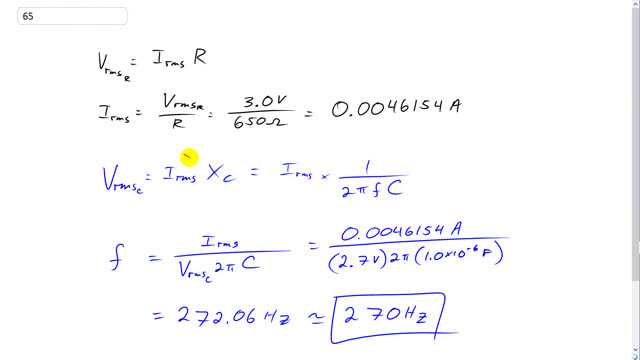 65
V_rms_R = I_rms R
I_rms = V_rms_R / R = 3.0V / 650Ω = 0.0046154 A
V_rms_C = I_rms X_C = I_rms × 1 / 2πfC
f = I_rms / V_rms_C 2π C = 0.0046154 A / (2.7V)2π(1.0×10⁻⁶ F)
= 272.06 Hz ≃ 270 Hz